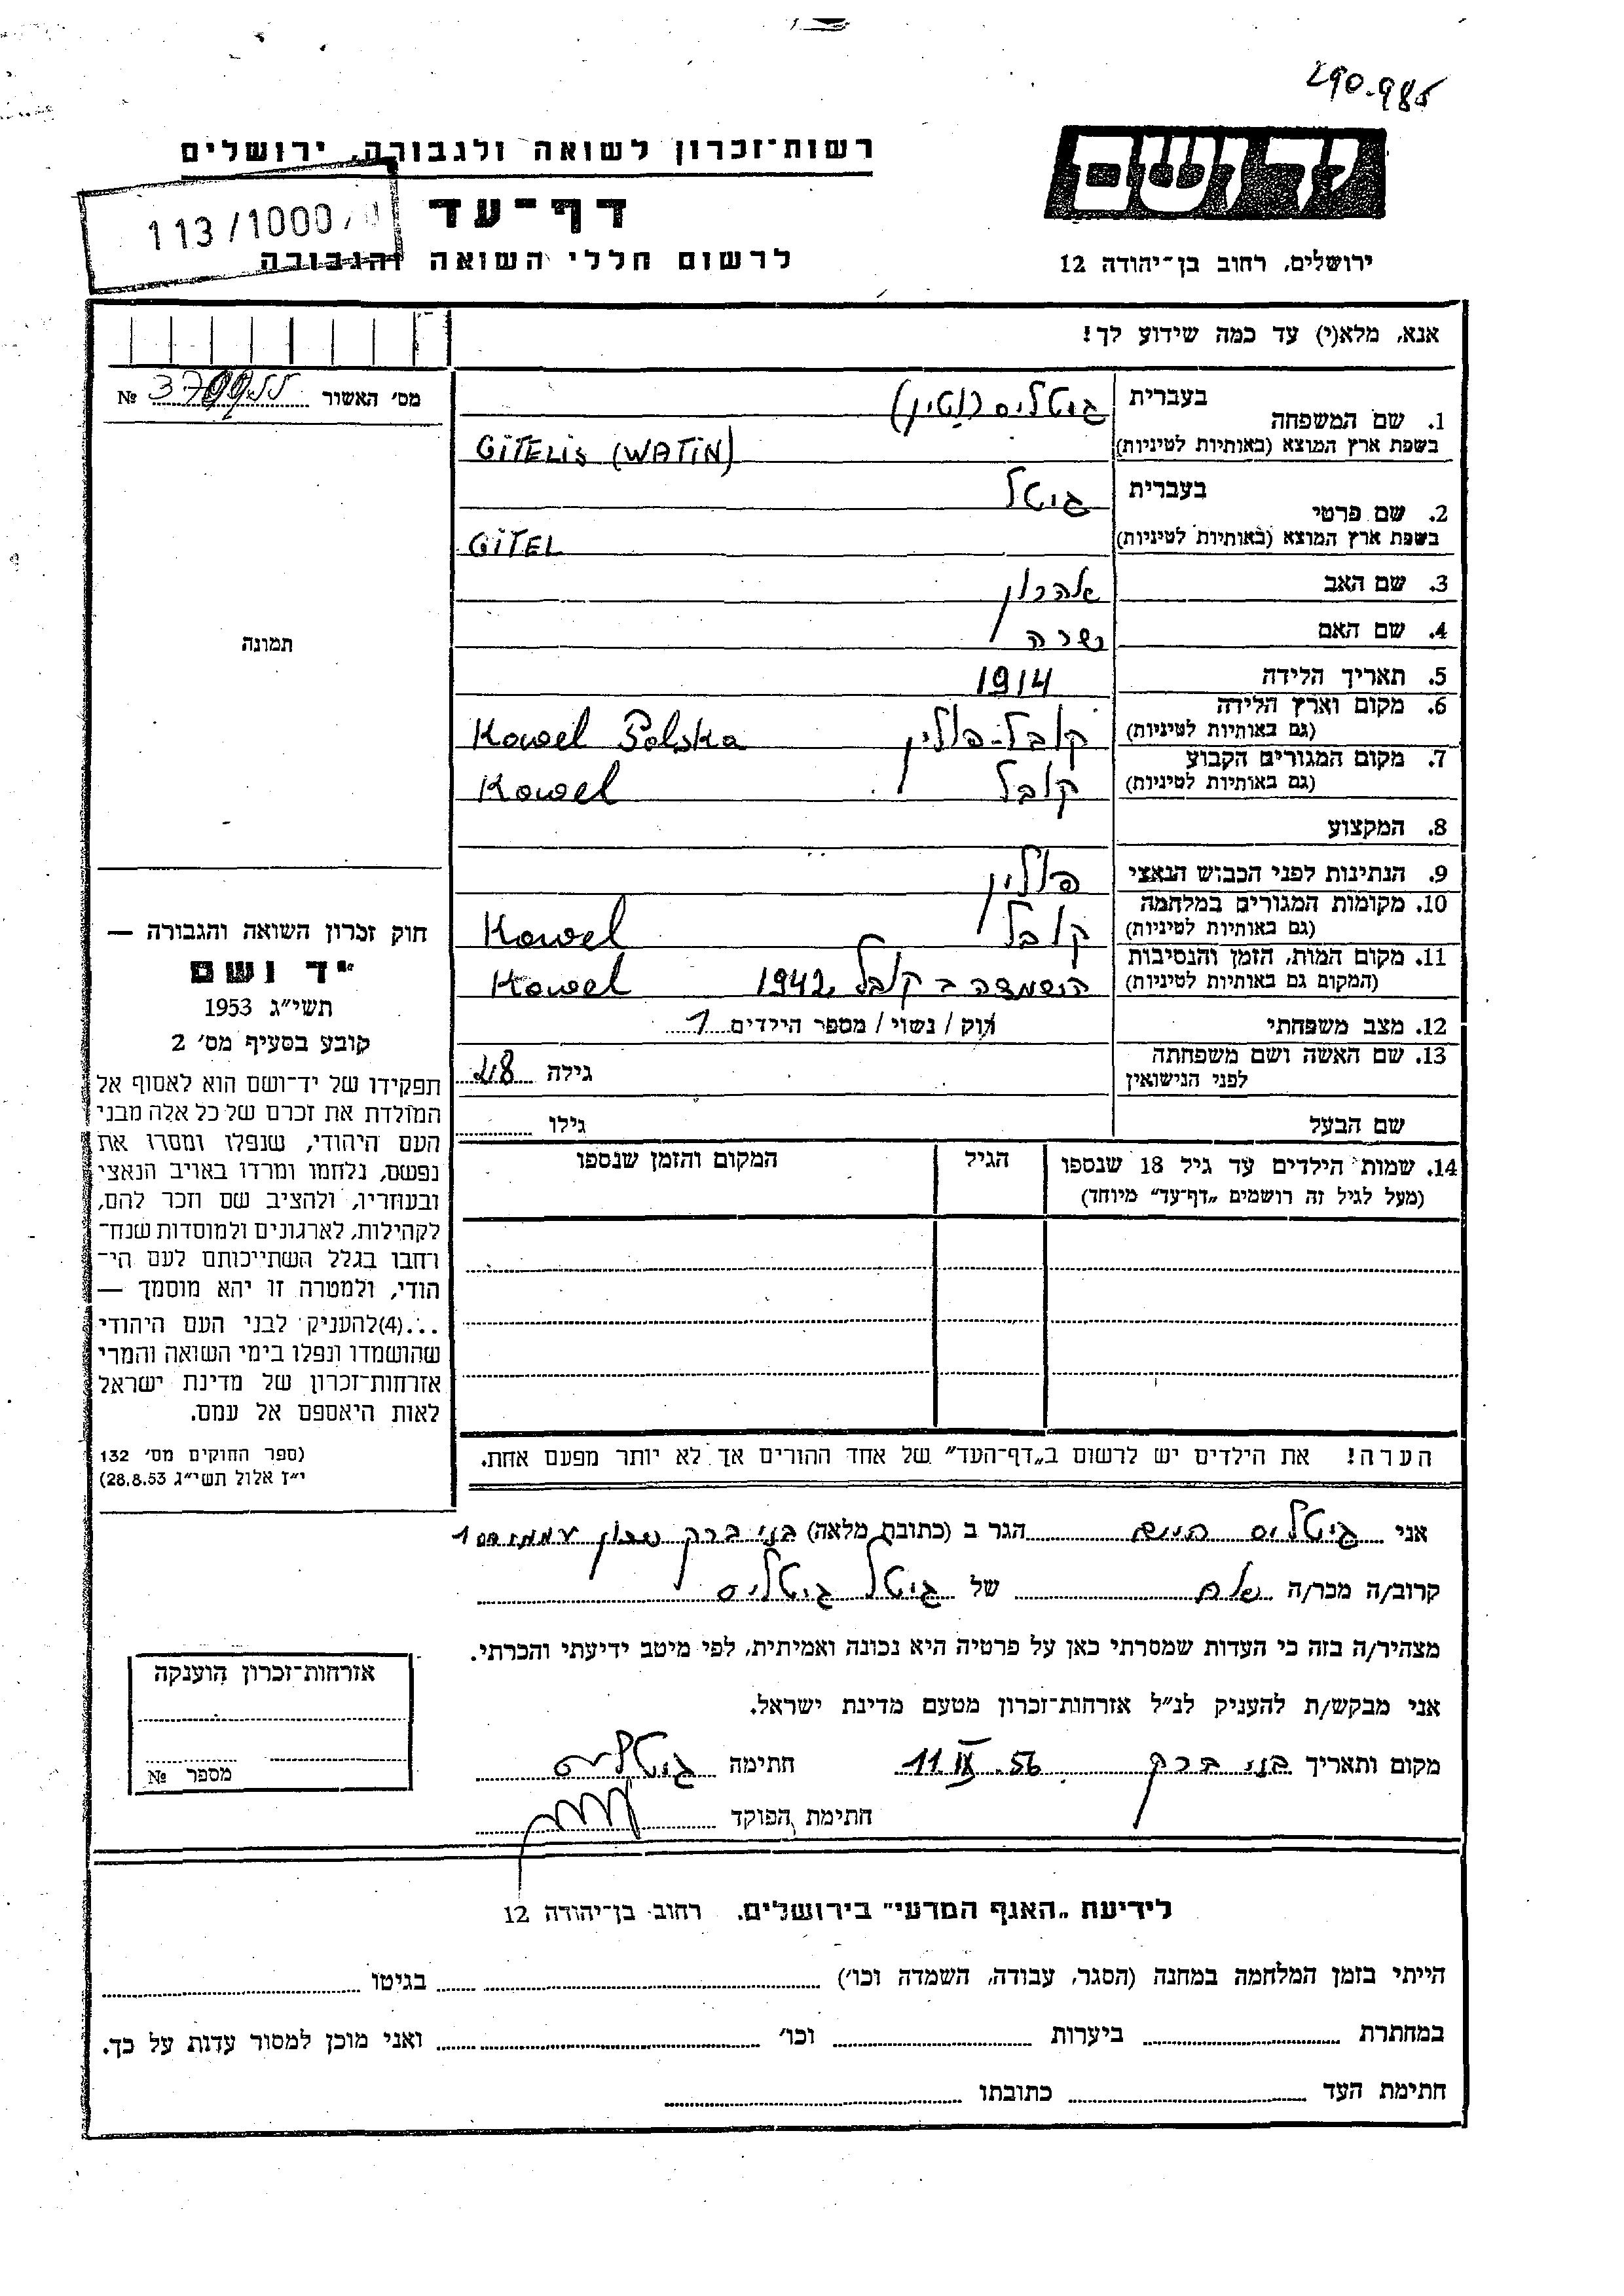 290.985
רשות־זכרון לשואה ולגבורה, ירושלים
יד ושם
113/1000/
דף־עד
לרשום חללי השואה והגבורה
ירושלים, רחוב בן־יהודה 12
אנא, מלא(י) עד כמה שידוע לך!
מס׳ האשור № 
1. שם המשפחה בעברית גיטליס (וטין)
בשפת ארץ המוצא (באותיות לטיניות) GITELIS (WATIN)
2. שם פרטי בעברית גיטל
בשפת ארץ המוצא (באותיות לטיניות) GITEL
3. שם האב אהרון
4. שם האם שרה
5. תאריך הלידה 1914
6. מקום וארץ הלידה קובל-פולין Kowel Polska
(גם באותיות לטיניות)
7. מקום המגורים הקבוע קובל Kowel
(גם באותיות לטיניות)
8. המקצוע
9. הנתינות לפני הכבוש הנאצי פולין
10. מקומות המגורים במלחמה קובל Kowel
(גם באותיות לטיניות)
11. מקום המות, הזמן והנסיבות הושמדה בקובל 1942 Kowel
(המקום גם באותיות לטיניות)
12. מצב משפחתי רוק / נשוי / מספר הילדים 1
13. שם האשה ושם משפחתה גילה 28
לפני הנישואין
שם הבעל גילו
14. שמות הילדים עד גיל 18 שנספו הגיל המקום והזמן שנספו
(מעל לגיל זה רושמים „דף־עד״ מיוחד)
הערה! את הילדים יש לרשום ב„דף־העד״ של אחד ההורים אך לא יותר מפעם אחת.
תמונה
חוק זכרון השואה והגבורה —
יד ושם
תשי״ג 1953
קובע בסעיף מס׳ 2
תפקידו של יד־ושם הוא לאסוף אל
המולדת את זכרם של כל אלה מבני
העם היהודי, שנפלו ומסרו את
נפשם, נלחמו ומרדו באויב הנאצי
ובעוזריו, ולהציב שם וזכר להם,
לקהילות, לארגונים ולמוסדות שנח־
רחבו בגלל השתייכותם לעם הי־
הודי, ולמטרה זו יהא מוסמך —
...(4)להעניק לבני העם היהודי
שהושמדו ונפלו בימי השואה והמרי
אזרחות־זכרון של מדינת ישראל
לאות היאספם אל עמם.
(ספר החוקים מס׳ 132
י״ז אלול תשי״ג 28.8.53)
אני גיטליס חיים הגר ב (כתובת מלאה) בני ברק שכון
קרוב/ה מכר/ה של גיטל גיטליס
מצהיר/ה בזה כי העדות שמסרתי כאן על פרטיה היא נכונה ואמיתית, לפי מיטב ידיעתי והכרתי.
אני מבקש/ת להעניק לנ״ל אזרחות־זכרון מטעם מדינת ישראל.
מקום ותאריך בני ברק 11 IX. 56 חתימה גיטליס
חתימת הפוקד
אזרחות־זכרון הוענקה
מספר №
לידיעת „האגף המדעי״ בירושלים. רחוב בן־יהודה 12
הייתי בזמן המלחמה במחנה (הסגר, עבודה, השמדה וכו׳) בגיטו
במחתרת ביערות וכו׳ ואני מוכן למסור עדות על כך.
חתימת העד כתובתו